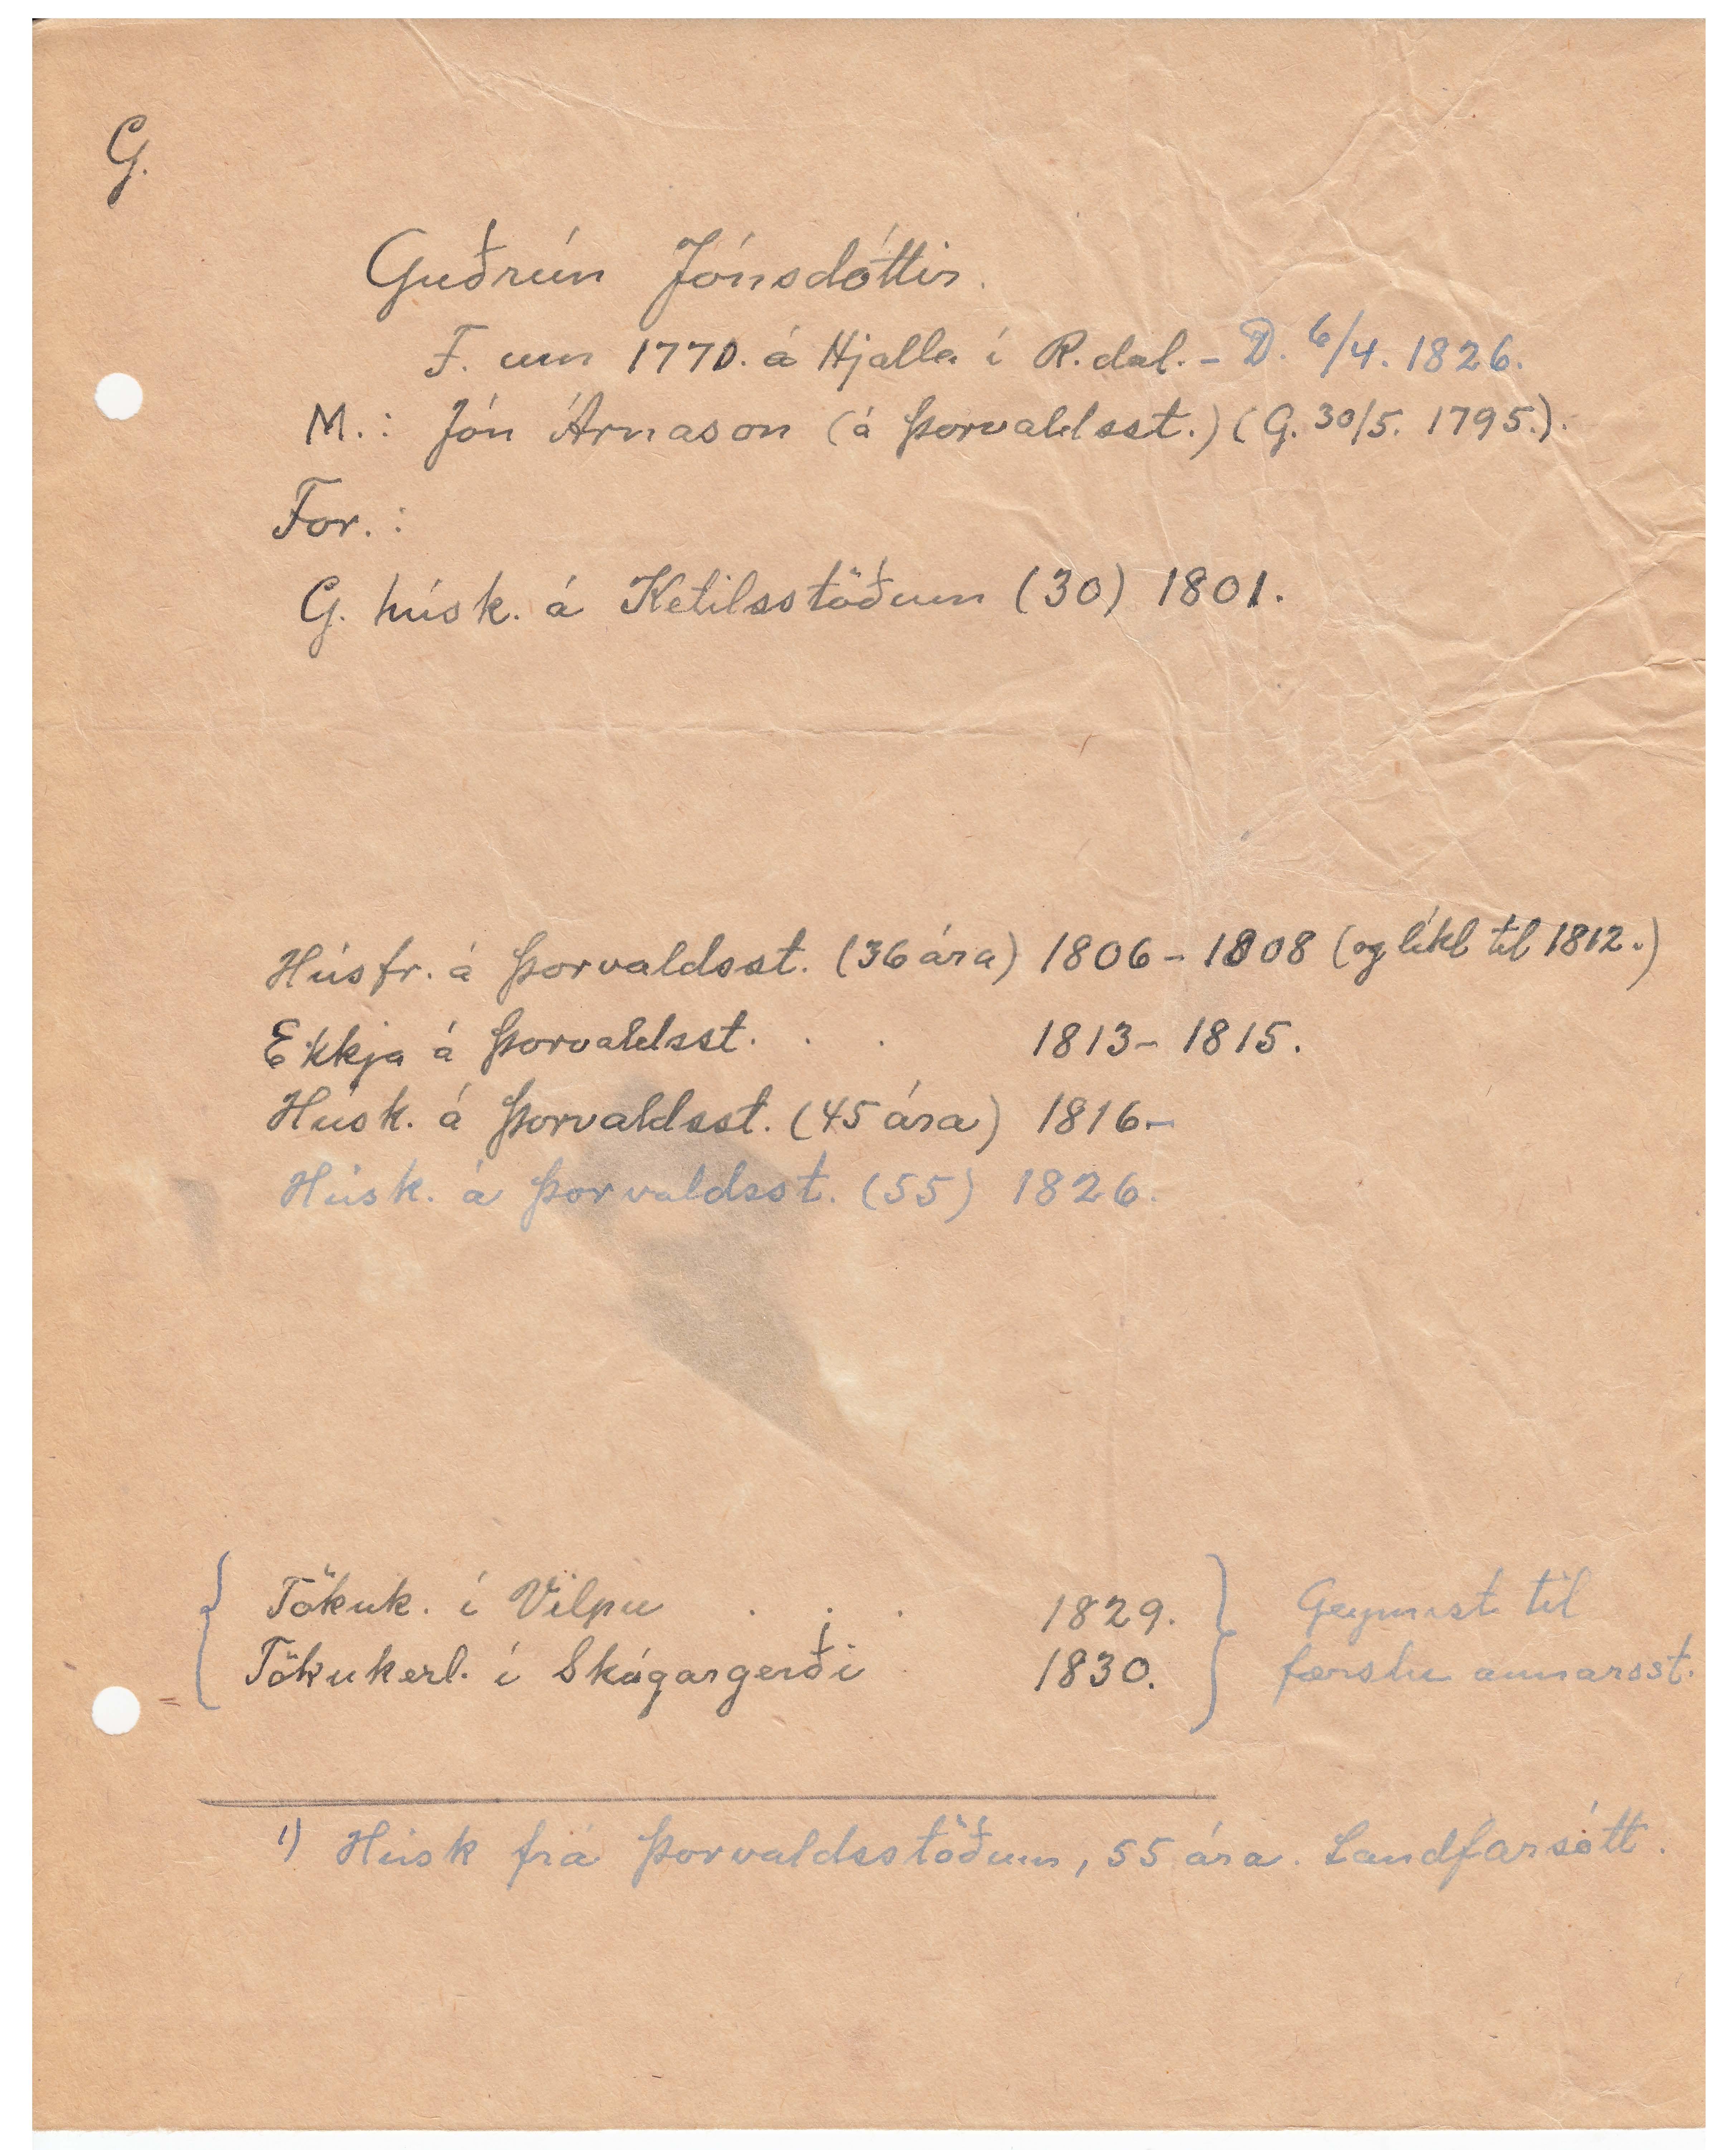 G.
Guðrún Jónsdóttir.
F. um 1770. á Hjalla í R.dal. - D. 6/4. 1826.
M.: Jón Árnason (á Þorvaldsst.) (G. 30/5. 1795.).
For.:
G. húsk. á Ketilsstöðum (30) 1801.
Húsfr. á Þorvaldsst. (36 ára) 1806 - 1808 (og líkl til 1812.)
Ekkja á Þorvaldsst. . . 1813 - 1815.
Húsk. á Þorvaldsst. (45 ára) 1816 -
Húsk. á Þorvaldsst. (55) 1826.
Tökuk. í Vilpu . . . 1829. Geymist til
Tökukerl. í Skógargerði 1830. færslu annarsst.
1) Húsk frá Þorvaldsstöðum, 55 ára. Landfarsótt.